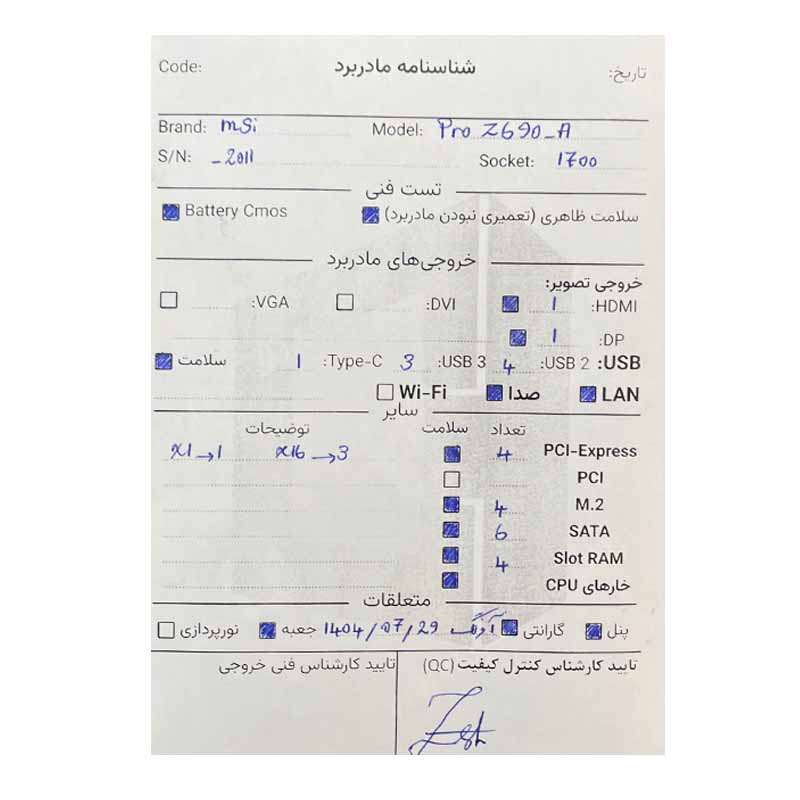 Code: شناسنامه مادربرد تاریخ:
Brand: msi Model: Pro Z690_A
S/N: _2011 Socket: 1700
تست فنی
سلامت ظاهری (تعمیری نبودن مادربرد) Battery Cmos
خروجی‌های مادربرد
خروجی تصویر:
HDMI: 1 DVI: VGA:
DP: 1
USB: USB 2: 4 USB 3: 3 Type-C: 1 سلامت
LAN صدا Wi-Fi
سایر
تعداد سلامت توضیحات
PCI-Express 4 x16 → 3 x1 → 1
PCI
M.2 4
SATA 6
Slot RAM 4
خارهای CPU
متعلقات
پنل گارانتی 1404/07/29 جعبه نورپردازی
تایید کارشناس کنترل کیفیت (QC) تایید کارشناس فنی خروجی